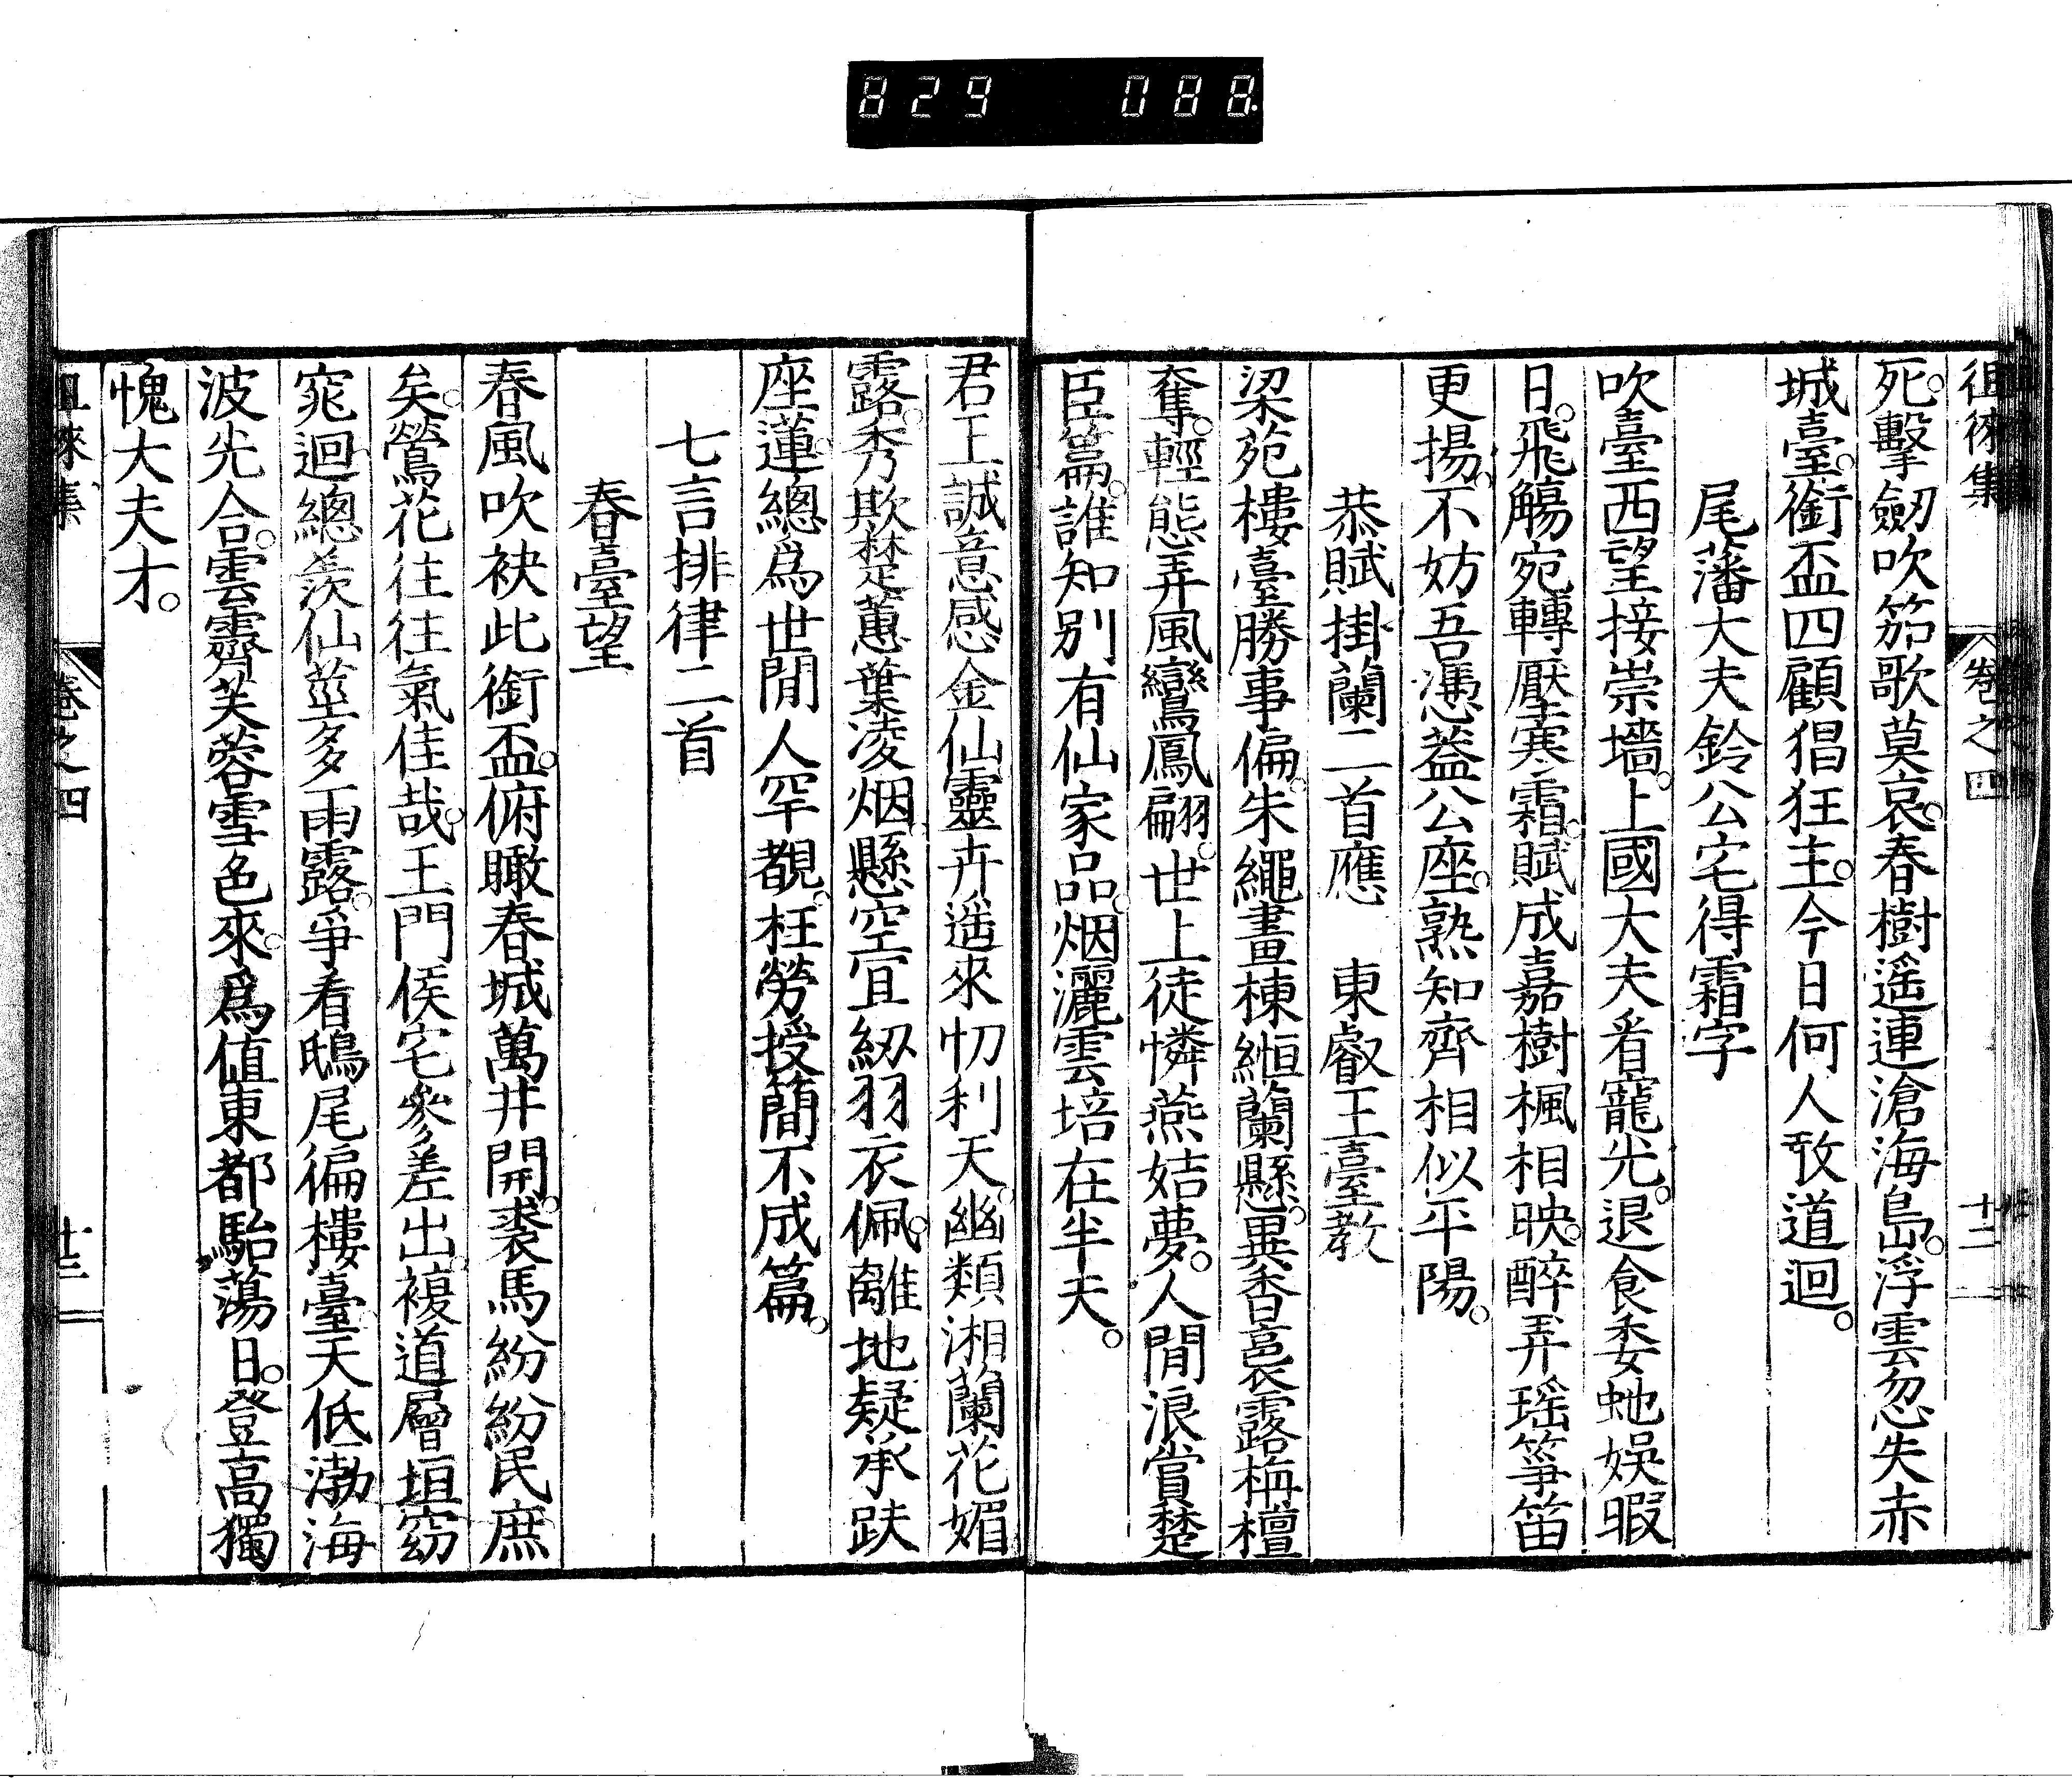 829 088
徂徠集
卷之四
十二
死。擊劒吹笳歌莫哀。春樹遥連滄海島。浮雲忽失赤
城臺。銜盃四顧猖狂主。今日何人敢道迴。
尾藩大夫鈴公宅得霜字
吹臺西望接崇墻。上國大夫看寵光。退食委虵娛暇
日。飛觴宛轉壓寒霜。賦成嘉樹楓相映。醉弄瑶箏笛
更揚。不妨吾憑蓋公座。熟知齊相似平陽。
恭賦掛蘭二首應 東叡王臺教
梁苑樓臺勝事偏。朱繩畫棟絙蘭懸。異香裛露栴檀
奪。輕態弄風鸞鳳翩。世上徒憐燕姞夢。人閒浪賞楚
臣篇。誰知別有仙家品。烟灑雲培在半天。
君王誠意感金仙靈卉遥來忉利天。幽類湘蘭花媚
露。秀欺楚蕙葉凌烟。懸空宜紉羽衣佩。離地疑承趺
座蓮。總爲世閒人罕覩。枉勞授簡不成篇。
七言排律二首
春臺望
春風吹袂此銜盃。俯瞰春城萬井開。裘馬紛紛民庶
矣。鶯花往往氣佳哉。王門侯宅參差出。複道層垣窈
窕迴。總羨仙莖多雨露。爭看鴟尾徧樓臺。天低渤海
波光合。雲霽芙蓉雪色來。爲値東都駘蕩日。登高獨
愧大夫才。
徂徠集
卷之四
十三